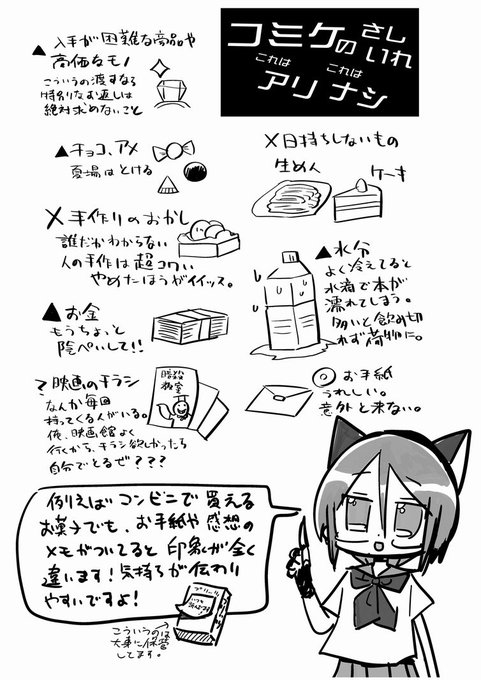 コミケの さしいれ
これは アリ これは ナシ
▲入手が困難な商品や
高価なモノ
こういうの渡すなら
特別なお返しは
絶対求めないこと
▲チョコ、アメ
夏場はとける
×日持ちしないもの
生めん
ケーキ
×手作りのおかし
誰だかわからない
人の手作は超コワい
やめたほうがイイッス。
▲水分
よく冷えてると
水滴で本が
濡れてしまう。
多いと飲み切
れず荷物に。
▲お金
もうちょっと
隠ぺいして!!
?映画のチラシ
なんか毎回
持ってくる人がいる。
俺、映画館よく
行くから、チラシ欲しかったら
自分でとるぜ???
暗殺
教室
◎お手紙
うれしい。
意外と来ない。
例えばコンビニで買える
お菓子でも、お手紙や感想の
メモがついてると印象が全く
違います!気持ちが伝わり
やすいですよ!
こういうのは
大事に保管
してます。